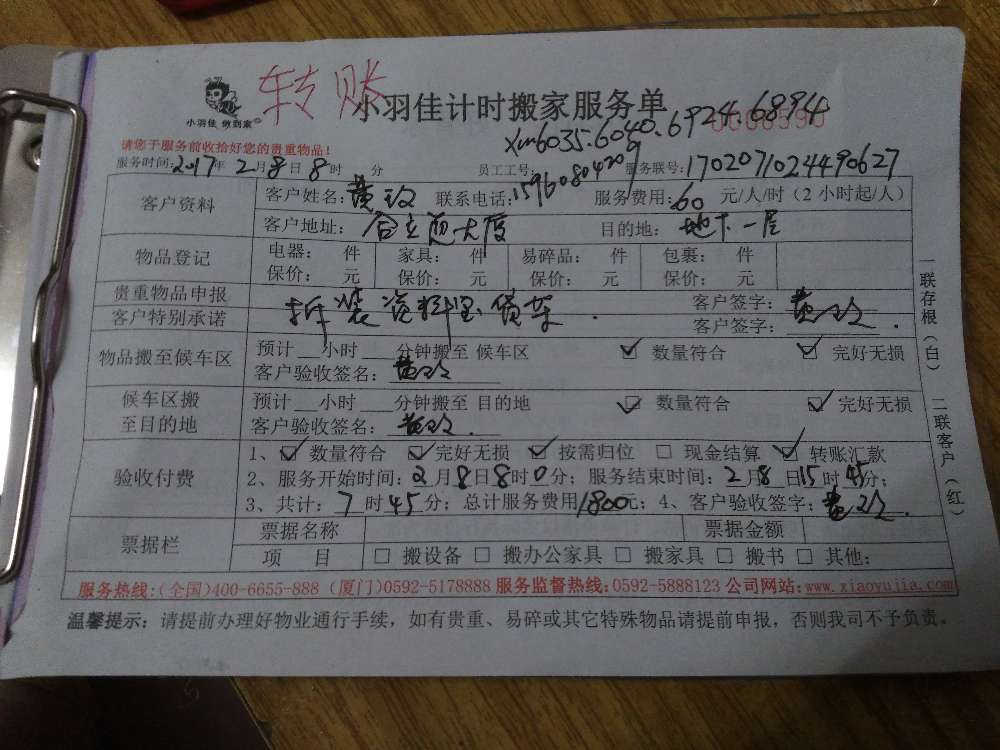 转账
小羽佳计时搬家服务单
小羽佳 做到家
Xm6035.6040.6924.6894
请您于服务前收拾好您的贵重物品！
服务时间：2017年2月8日8时 分 员工工号： 服务联号：1702071024490627
客户资料
客户姓名：黄玫 联系电话：15960804209 服务费用：60元/人/时（2小时起/人）
客户地址： 目的地：地下一层
物品登记
电器： 件 家具： 件 易碎品： 件 包裹： 件
保价： 元 保价： 元 保价： 元 保价： 元
贵重物品申报 客户签字：黄玫
客户特别承诺 拆装资料室货架. 客户签字：黄玫.
物品搬至候车区
预计__小时___分钟搬至 候车区 ☑ 数量符合 ☑ 完好无损
客户验收签名：黄玫
候车区搬至目的地
预计__小时___分钟搬至 目的地 ☑ 数量符合 ☑ 完好无损
客户验收签名：黄玫.
验收付费
1、☑数量符合 ☑完好无损 ☑按需归位 □现金结算 ☑转账汇款
2、服务开始时间：2月8日8时0分；服务结束时间：2月8日15时45分；
3、共计：7时45分；总计服务费用1800元；4、客户验收签字：黄玫.
票据栏
票据名称 票据金额
项 目 □ 搬设备 □ 搬办公家具 □ 搬家具 □ 搬书 □ 其他:
服务热线:(全国)400-6655-888 (厦门)0592-5178888 服务监督热线:0592-5888123 公司网站:www.xiaoyujia.com
温馨提示：请提前办理好物业通行手续，如有贵重、易碎或其它特殊物品请提前申报，否则我司不予负责。
一联存根（白） 二联客户（红）